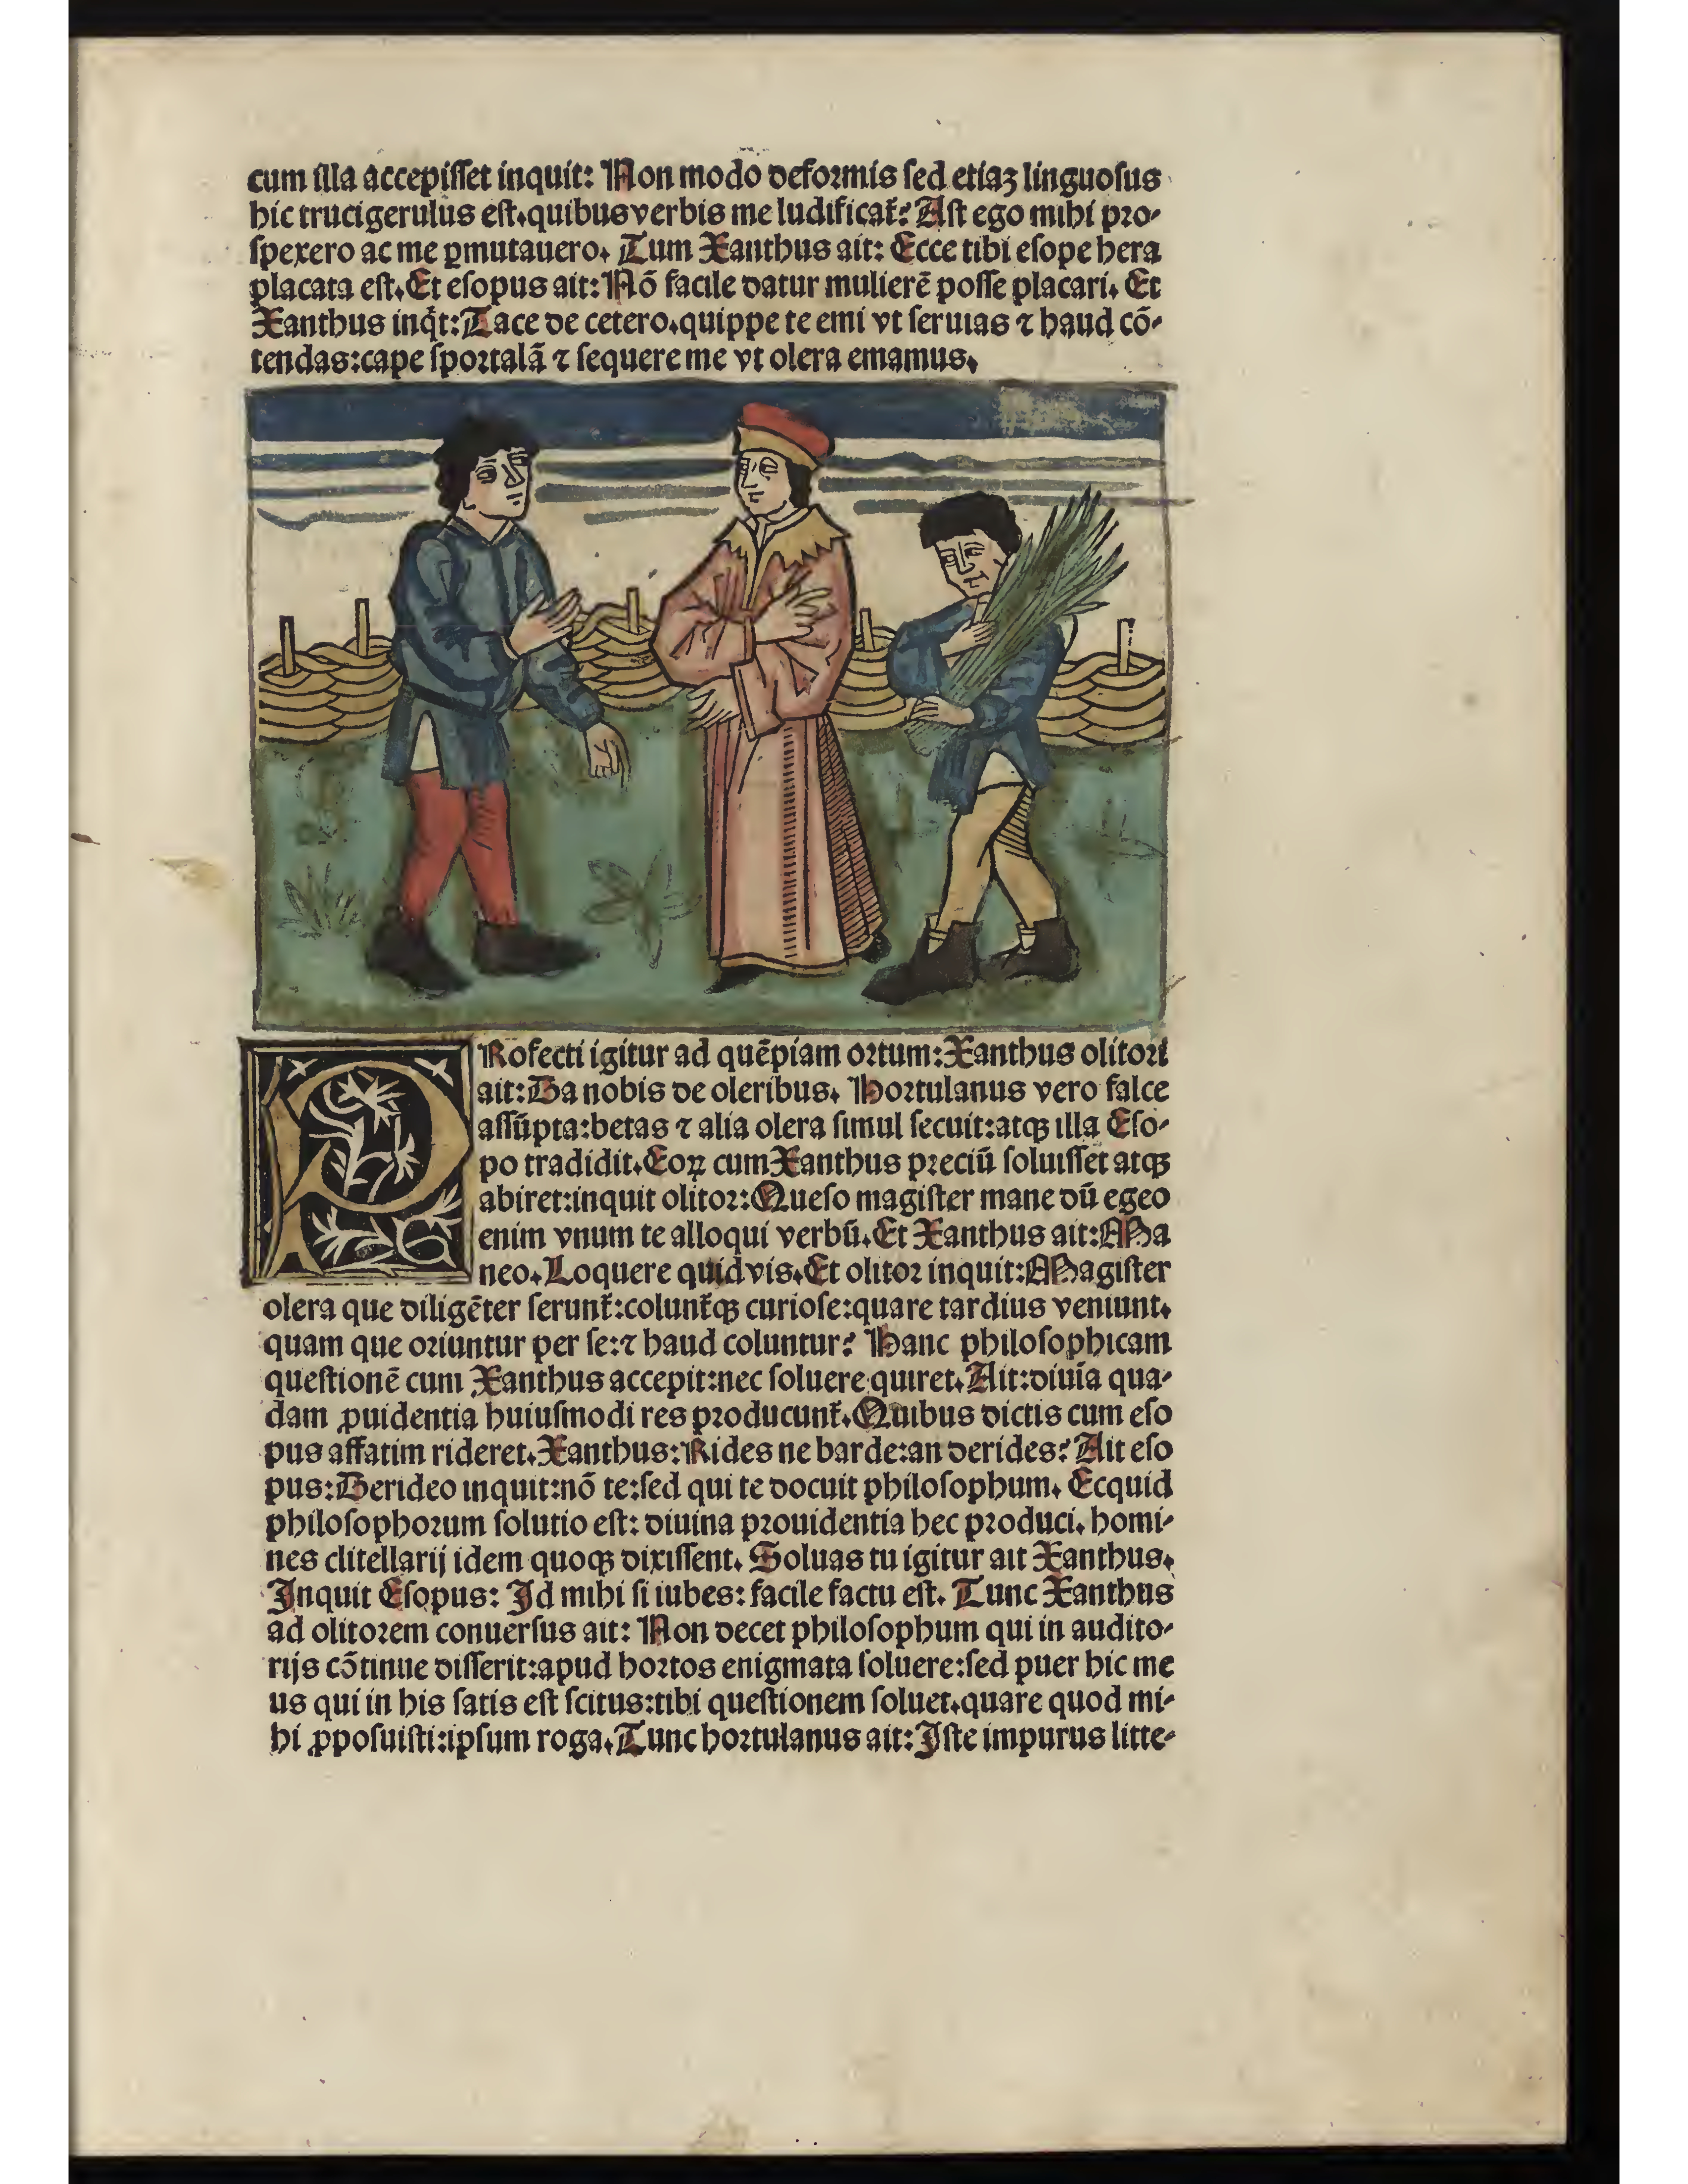 cum illa accepiſſet inquit: Non modo deformis ſed etiaʒ linguoſus
hic trucigerulus eſt.quibus verbis me ludificat̃? Aſt ego mihi pro-
ſpexero ac me ꝑmutauero. Tum Xanthus ait: Ecce tibi eſope hera
placata eſt. Et eſopus ait: Nō facile datur mulierē poſſe placari. Et
Xanthus inq̇t: Tace de cetero.quippe te emi vt ſeruias ⁊ haud cō-
tendas: cape ſportalā ⁊ ſequere me vt olera emamus.
PRofecti igitur ad quēpiam ortum: Xanthus olitori
ait: Da nobis de oleribus. Hortulanus vero falce
aſſūpta: betas ⁊ alia olera ſimul ſecuit: atqꝫ illa Eſo-
po tradidit. Eoꝝ cum Xanthus preciū ſoluiſſet atqꝫ
abiret: inquit olitor: Queſo magiſter mane dū egeo
enim vnum te alloqui verbū. Et Xanthus ait: Ma
neo. Loquere quid vis. Et olitor inquit: Magiſter
olera que diligēter ſerunt̃: colunt̃qꝫ curioſe: quare tardius veniunt.
quam que oriuntur per ſe: ⁊ haud coluntur? Hanc philoſophicam
queſtionē cum Xanthus accepit: nec ſoluere quiret. Ait: diuīa qua-
dam ꝓuidentia huiuſmodi res producunt̃. Quibus dictis cum eſo
pus affatim rideret. Xanthus: Rides ne barde: an derides? Ait eſo
pus: Derideo inquit: nō te: ſed qui te docuit philoſophum. Ecquid
philoſophorum ſolutio eſt: diuina prouidentia hec produci. homi-
nes clitellarij idem quoqꝫ dixiſſent. Soluas tu igitur ait Xanthus.
Inquit Eſopus: Id mihi ſi iubes: facile factu eſt. Tunc Xanthus
ad olitorem conuerſus ait: Non decet philoſophum qui in audito-
rijs cōtinue diſſerit: apud hortos enigmata ſoluere: ſed puer hic me
us qui in his ſatis eſt ſcitus: tibi queſtionem ſoluet. quare quod mi-
hi ꝓpoſuiſti: ipſum roga. Tunc hortulanus ait: Iſte impurus litte-